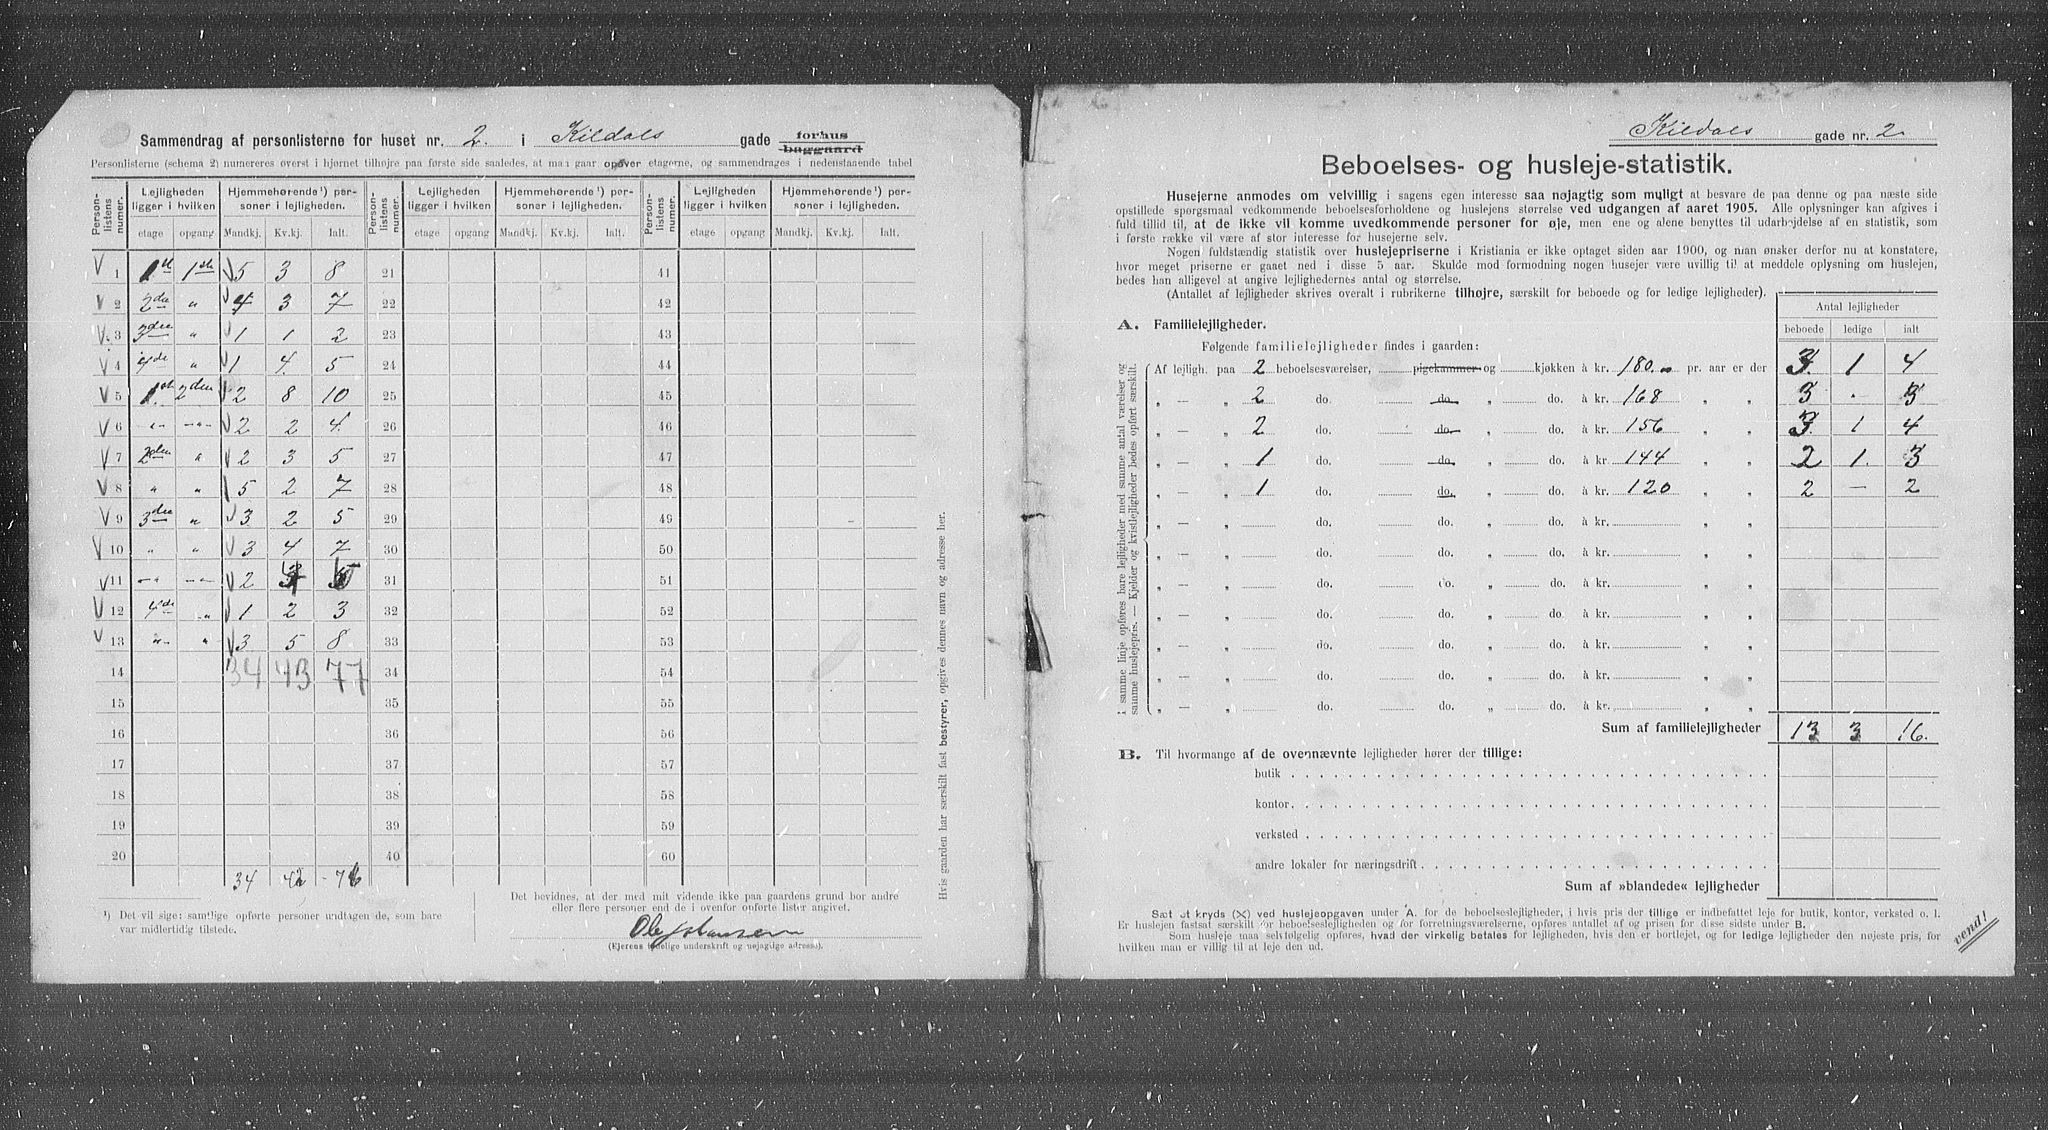 Sammendrag af personlisterne for huset nr. 2. i Kildals gade forhus baggaard
Personlisterne (schema 2) numereres øverst i hjørnet tilhøjre paa første side saaledes, at man gaar opover etagerne, og sammendrages i nedenstaaende tabel
Person-listens numer. Lejligheden ligger i hvilken Hjemmehørende¹) personer i lejligheden. Person-listens numer. Lejligheden ligger i hvilken Hjemmehørende¹) personer i lejligheden. Person-listens numer. Lejligheden ligger i hvilken Hjemmehørende¹) personer i lejligheden.
etage opgang Mandkj. Kv.kj. Ialt. etage opgang Mandkj. Kv.kj. Ialt. etage opgang Mandkj. Kv.kj. Ialt.
V 1 1ste 1ste V 5 3 8 21 41
V 2 2den " V 4 3 7 22 42
V 3 3die " V 1 1 2 23 43
V 4 4de " V 1 4 5 24 44
V 5 1ste 2den V 2 8 10 25 45
V 6 -"- -"- V 2 2 4 26 46
V 7 2den " V 2 3 5 27 47
V 8 " " V 5 2 7 28 48
V 9 3die " V 3 2 5 29 49
V 10 " " V 3 4 7 30 50
V 11 -"- -"- V 2 31 51
V 12 4de " V 1 2 3 32 52
V 13 " " V 3 5 8 33 53
14 34 43 77 34 54
15 35 55
16 36 56
17 37 57
18 38 58
19 39 59
20 40 60
34
¹) Det vil sige: samtlige opførte personer undtagen de, som bare
var midlertidig tilstede.
Det bevidnes, at der med mit vidende ikke paa gaardens grund bor andre
eller flere personer end de i ovenfor opførte lister angivet.
Ole Johansen
(Ejerens tydelige underskrift og nøjagtige adresse).
Hvis gaarden har særskilt fast bestyrer, opgives dennes navn og adresse her.
Kildals gade nr. 2.
Beboelses- og husleje-statistik.
Husejerne anmodes om velvillig i sagens egen interesse saa nøjagtig som muligt at besvare de paa denne og paa næste side
opstillede spørgsmaal vedkommende beboelsesforholdene og huslejens størrelse ved udgangen af aaret 1905. Alle oplysninger kan afgives i
fuld tillid til, at de ikke vil komme uvedkommende personer for øje, men ene og alene benyttes til udarbejdelse af en statistik, som
i første række vil være af stor interesse for husejerne selv.
Nogen fuldstændig statistik over huslejepriserne i Kristiania er ikke optaget siden aar 1900, og man ønsker derfor nu at konstatere,
hvor meget priserne er gaaet ned i disse 5 aar. Skulde mod formodning nogen husejer være uvillig til at meddele oplysning om huslejen,
bedes han alligevel at angive lejlighedernes antal og størrelse.
(Antallet af lejligheder skrives overalt i rubrikerne tilhøjre, særskilt for beboede og for ledige lejligheder).
Antal lejligheder
beboede ledige ialt
A. Familielejligheder.
Følgende familielejligheder findes i gaarden:
I samme linje opføres bare lejligheder med samme antal værelser og
samme huslejepris. — Kjelder og kvistlejligheder bedes opført særskilt.
Af lejligh. paa 2 beboelsesværelser, pigekammer og kjøkken à kr. 180.„ pr. aar er der 3 1 4
„ — „ 2 do. do. „ do. à kr. 168 „ „ 3 - 3
„ — „ 2 do. do. „ do. à kr. 156 „ „ 3 1 4
„ — „ 1 do. do. „ do. à kr. 144 „ „ 2 1. 3
„ — „ 1 do. do. „ do. à kr. 120 „ „ 2 — 2
„ — „ do. do. „ do. à kr. „ „
„ — „ do. do. „ do. à kr. „ „
„ — „ do. do. „ do. à kr. „ „
„ — „ do. do. „ do. à kr. „ „
„ — „ do. do. „ do. à kr. „ „
„ — „ do. do. „ do. à kr. „ „
„ — „ do. do. „ do. à kr. „ „
Sum af familielejligheder 13 3 16.
B. Til hvormange af de ovennævnte lejligheder hører der tillige:
butik
kontor
verksted
andre lokaler for næringsdrift
Sum af »blandede« lejligheder
Sæt et kryds (X) ved huslejeopgaven under A. for de beboelseslejligheder, i hvis pris der tillige er indbefattet leje for butik, kontor, verksted o. l.
Er huslejen fastsat særskilt for beboelseslejligheden og for forretningsværelserne, opføres antallet af og prisen for disse sidste under B.
Som husleje maa selvfølgelig opføres, hvad der virkelig betales for lejligheden, hvis den er bortlejet, og for ledige lejligheder den nøjeste pris, for
hvilken man er villig til at leje den ud.
vend!